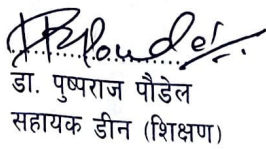 डा. पुष्पराज पौडेल
सहायक डीन (शिक्षण)